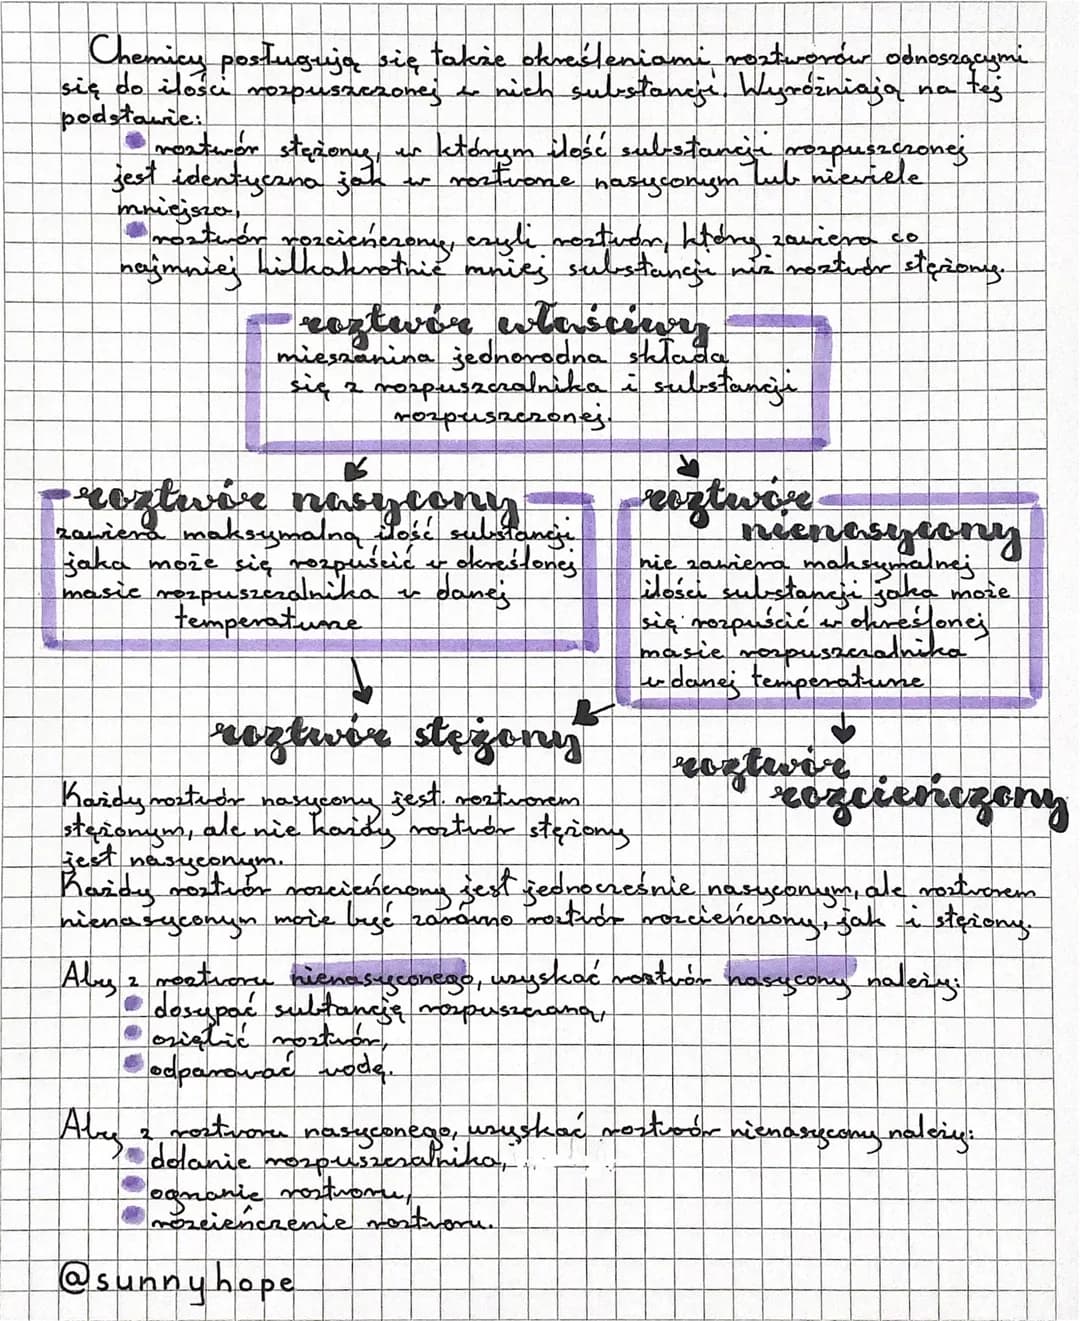 Chemicy posługują się także określeniami roztworów odnoszącymi
się do ilości rozpuszczonej w nich substancji. Wyróżniają na tej
podstawie:
roztwór stężony, w którym ilość substancji rozpuszczonej
jest identyczna jak w roztworze nasyconym lub niewiele
mniejsza,
roztwór rozcieńczony, czyli roztwór, który zawiera co
najmniej kilkakrotnie mniej substancji niż roztwór stężony.
roztwór właściwy
mieszanina jednorodna składa
się z rozpuszczalnika i substancji
rozpuszczonej.
roztwór nasycony
zawiera maksymalną ilość substancji
jaka może się rozpuścić w określonej
masie rozpuszczalnika w danej
temperaturze
roztwór
nienasycony
nie zawiera maksymalnej
ilości substancji jaka może
się rozpuścić w określonej
masie rozpuszczalnika
w danej temperaturze
roztwór stężony
roztwór
rozcieńczony
Każdy roztwór nasycony jest roztworem
stężonym, ale nie każdy roztwór stężony
jest nasyconym.
Każdy roztwór rozcieńczony jest jednocześnie nasyconym, ale roztworem
nienasyconym może być zarówno roztwór rozcieńczony, jak i stężony.
Aby z roztworu nienasyconego, uzyskać roztwór nasycony należy:
dosypać subtancję rozpuszczaną,
oziębić roztwór,
odparować wodę.
Aby z roztworu nasyconego, uzyskać roztwór nienasycony należy:
dolanie rozpuszczalnika,
ogrzanie roztworu,
rozcieńczenie roztworu.
@sunnyhope